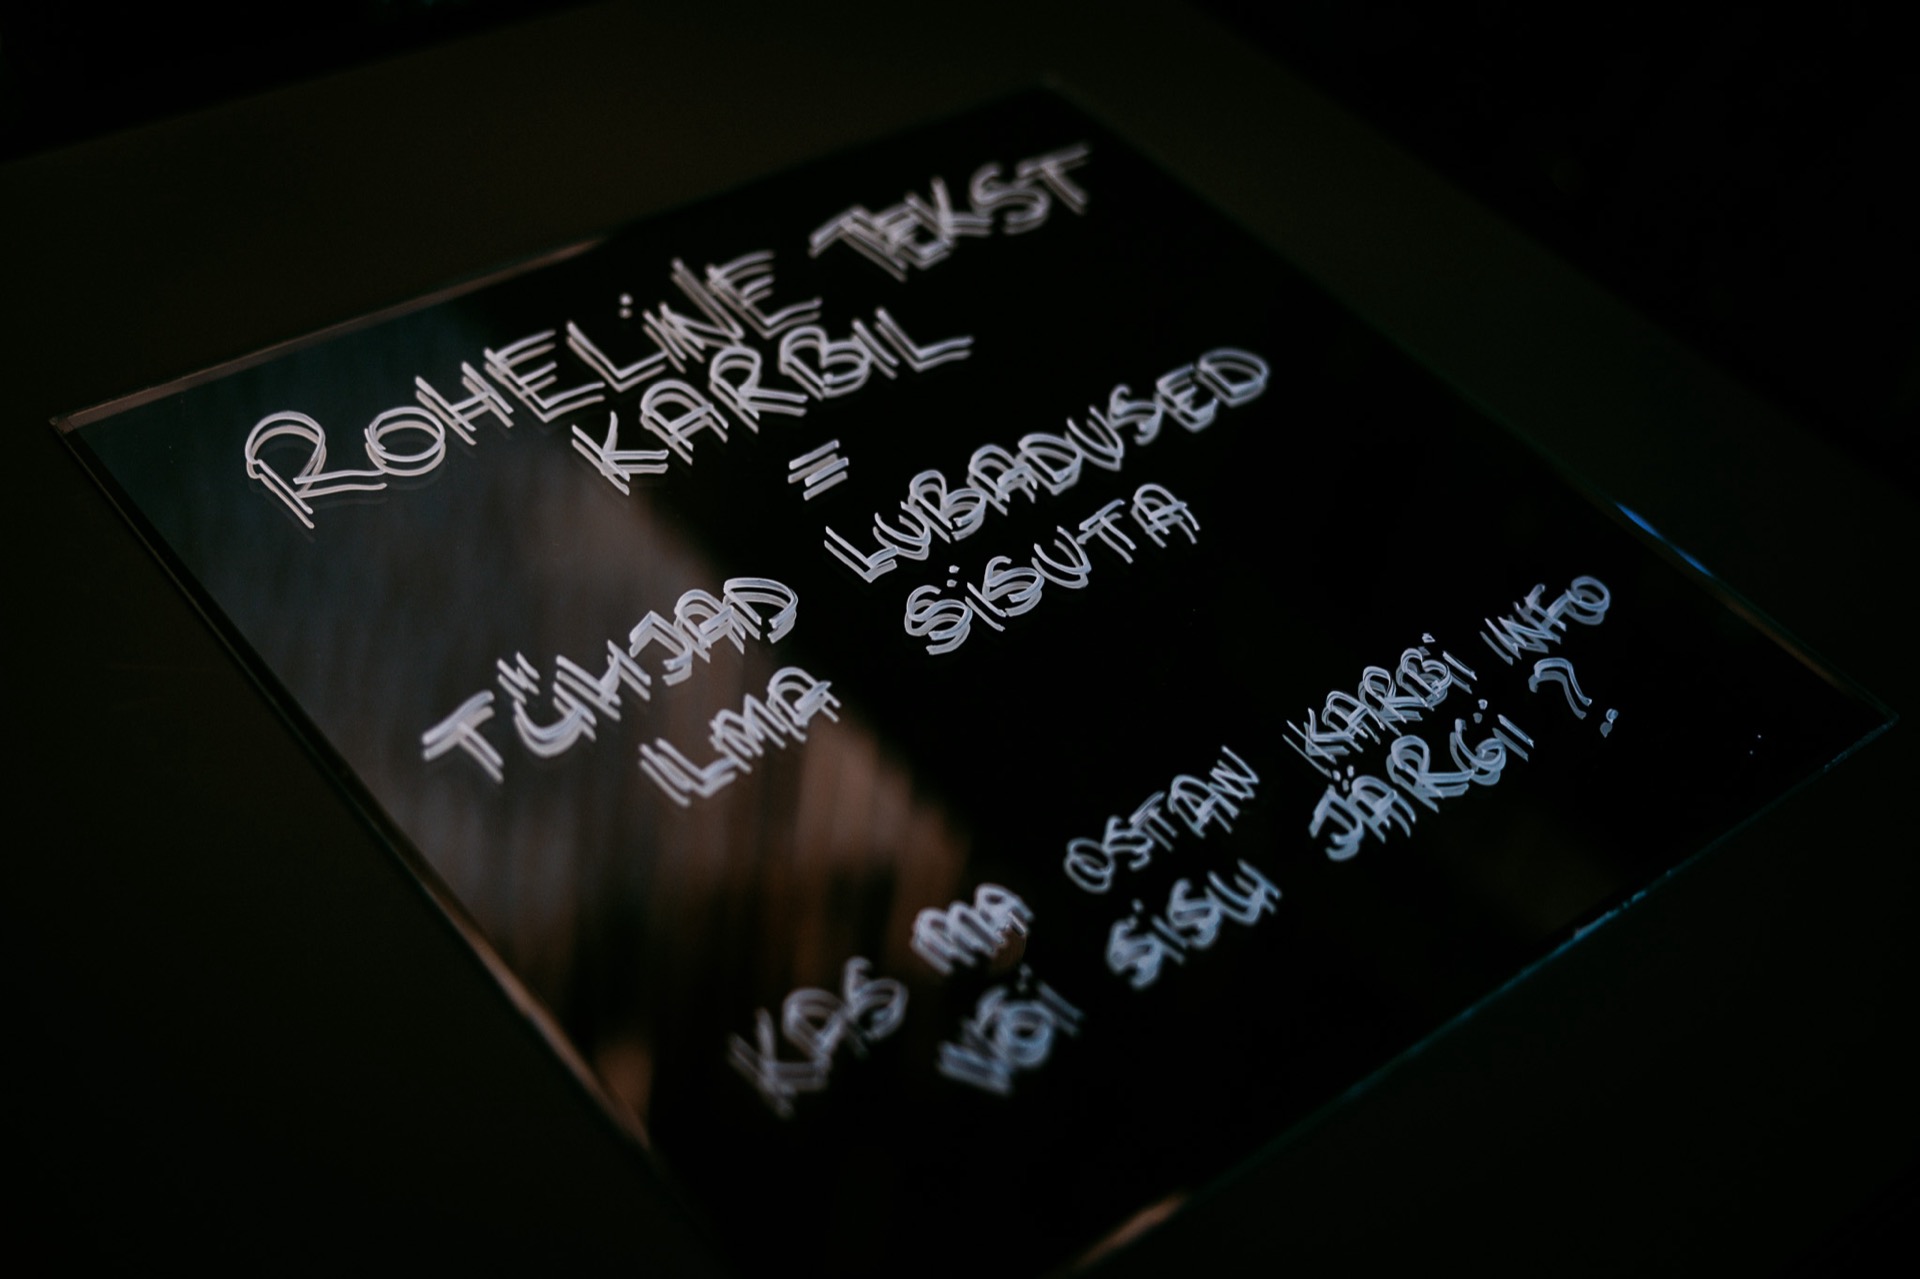 ROHELINE TEKST
KARBIL
=
TÜHJAD LUBADUSED
ILMA SISUTA
KAS MA OSTAN KARBI INFO
VÕI SISU JÄRGI?